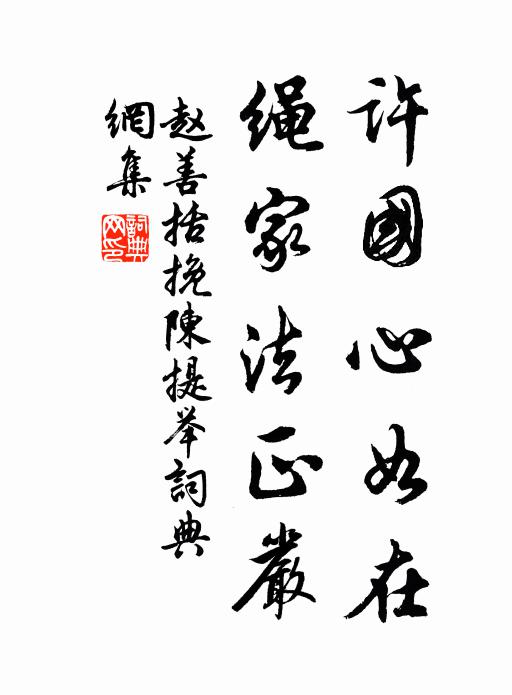 許國心如在
绳家法正嚴
赵善括挽陳提举詞典
網集
詞典
网印